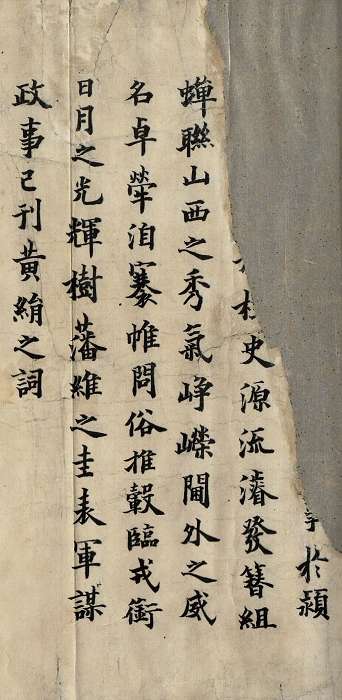 於潁
史源流濬發簪組
蟬聯山西之秀氣崢嶸閫外之威
名卓犖洎褰帷問俗推轂臨戎銜
日月之光輝樹藩維之圭表軍謀
政事已刊黃絹之詞